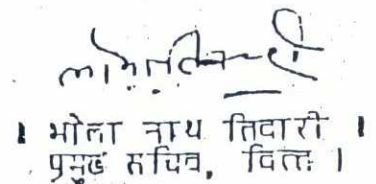 । भोला नाथ तिवारी ।
प्रमुख सचिव, वित्त ।